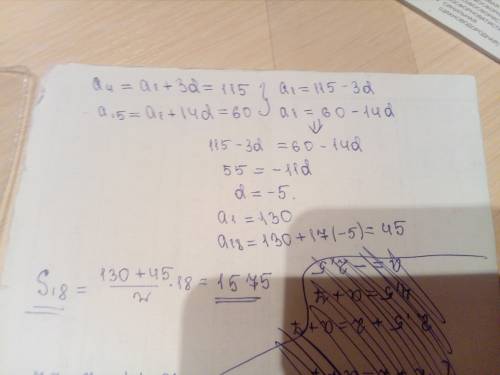 a₄ = a₁ + 3d = 115 } a₁ = 115 - 3d
a₁₅ = a₁ + 14d = 60 } a₁ = 60 - 14d
⇓
115 - 3d = 60 - 14d
55 = -11d
d = -5.
a₁ = 130
a₁₈ = 130 + 17(-5) = 45
S₁₈ = (130 + 45)/2 · 18 = 1575
2,5 + 2 = a + 7
4,5 = a + 7
a = -2,5